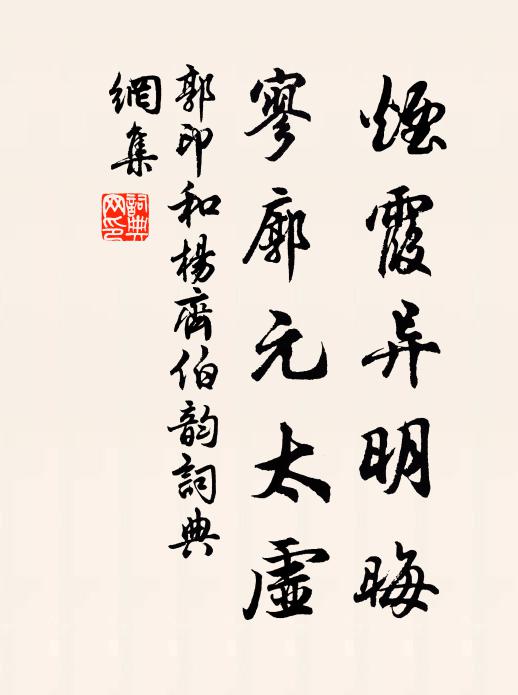 煙霞异明晦
寥廓元太虛
郭印和楊齊伯韵詞典
網集
詞典
网印